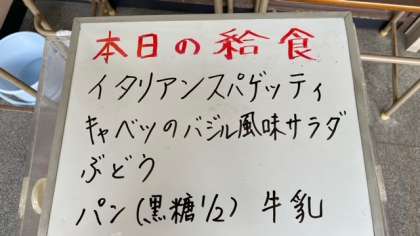 本日の給食
イタリアンスパゲッティ
キャベツのバジル風味サラダ
ぶどう
パン(黒糖1/2) 牛乳